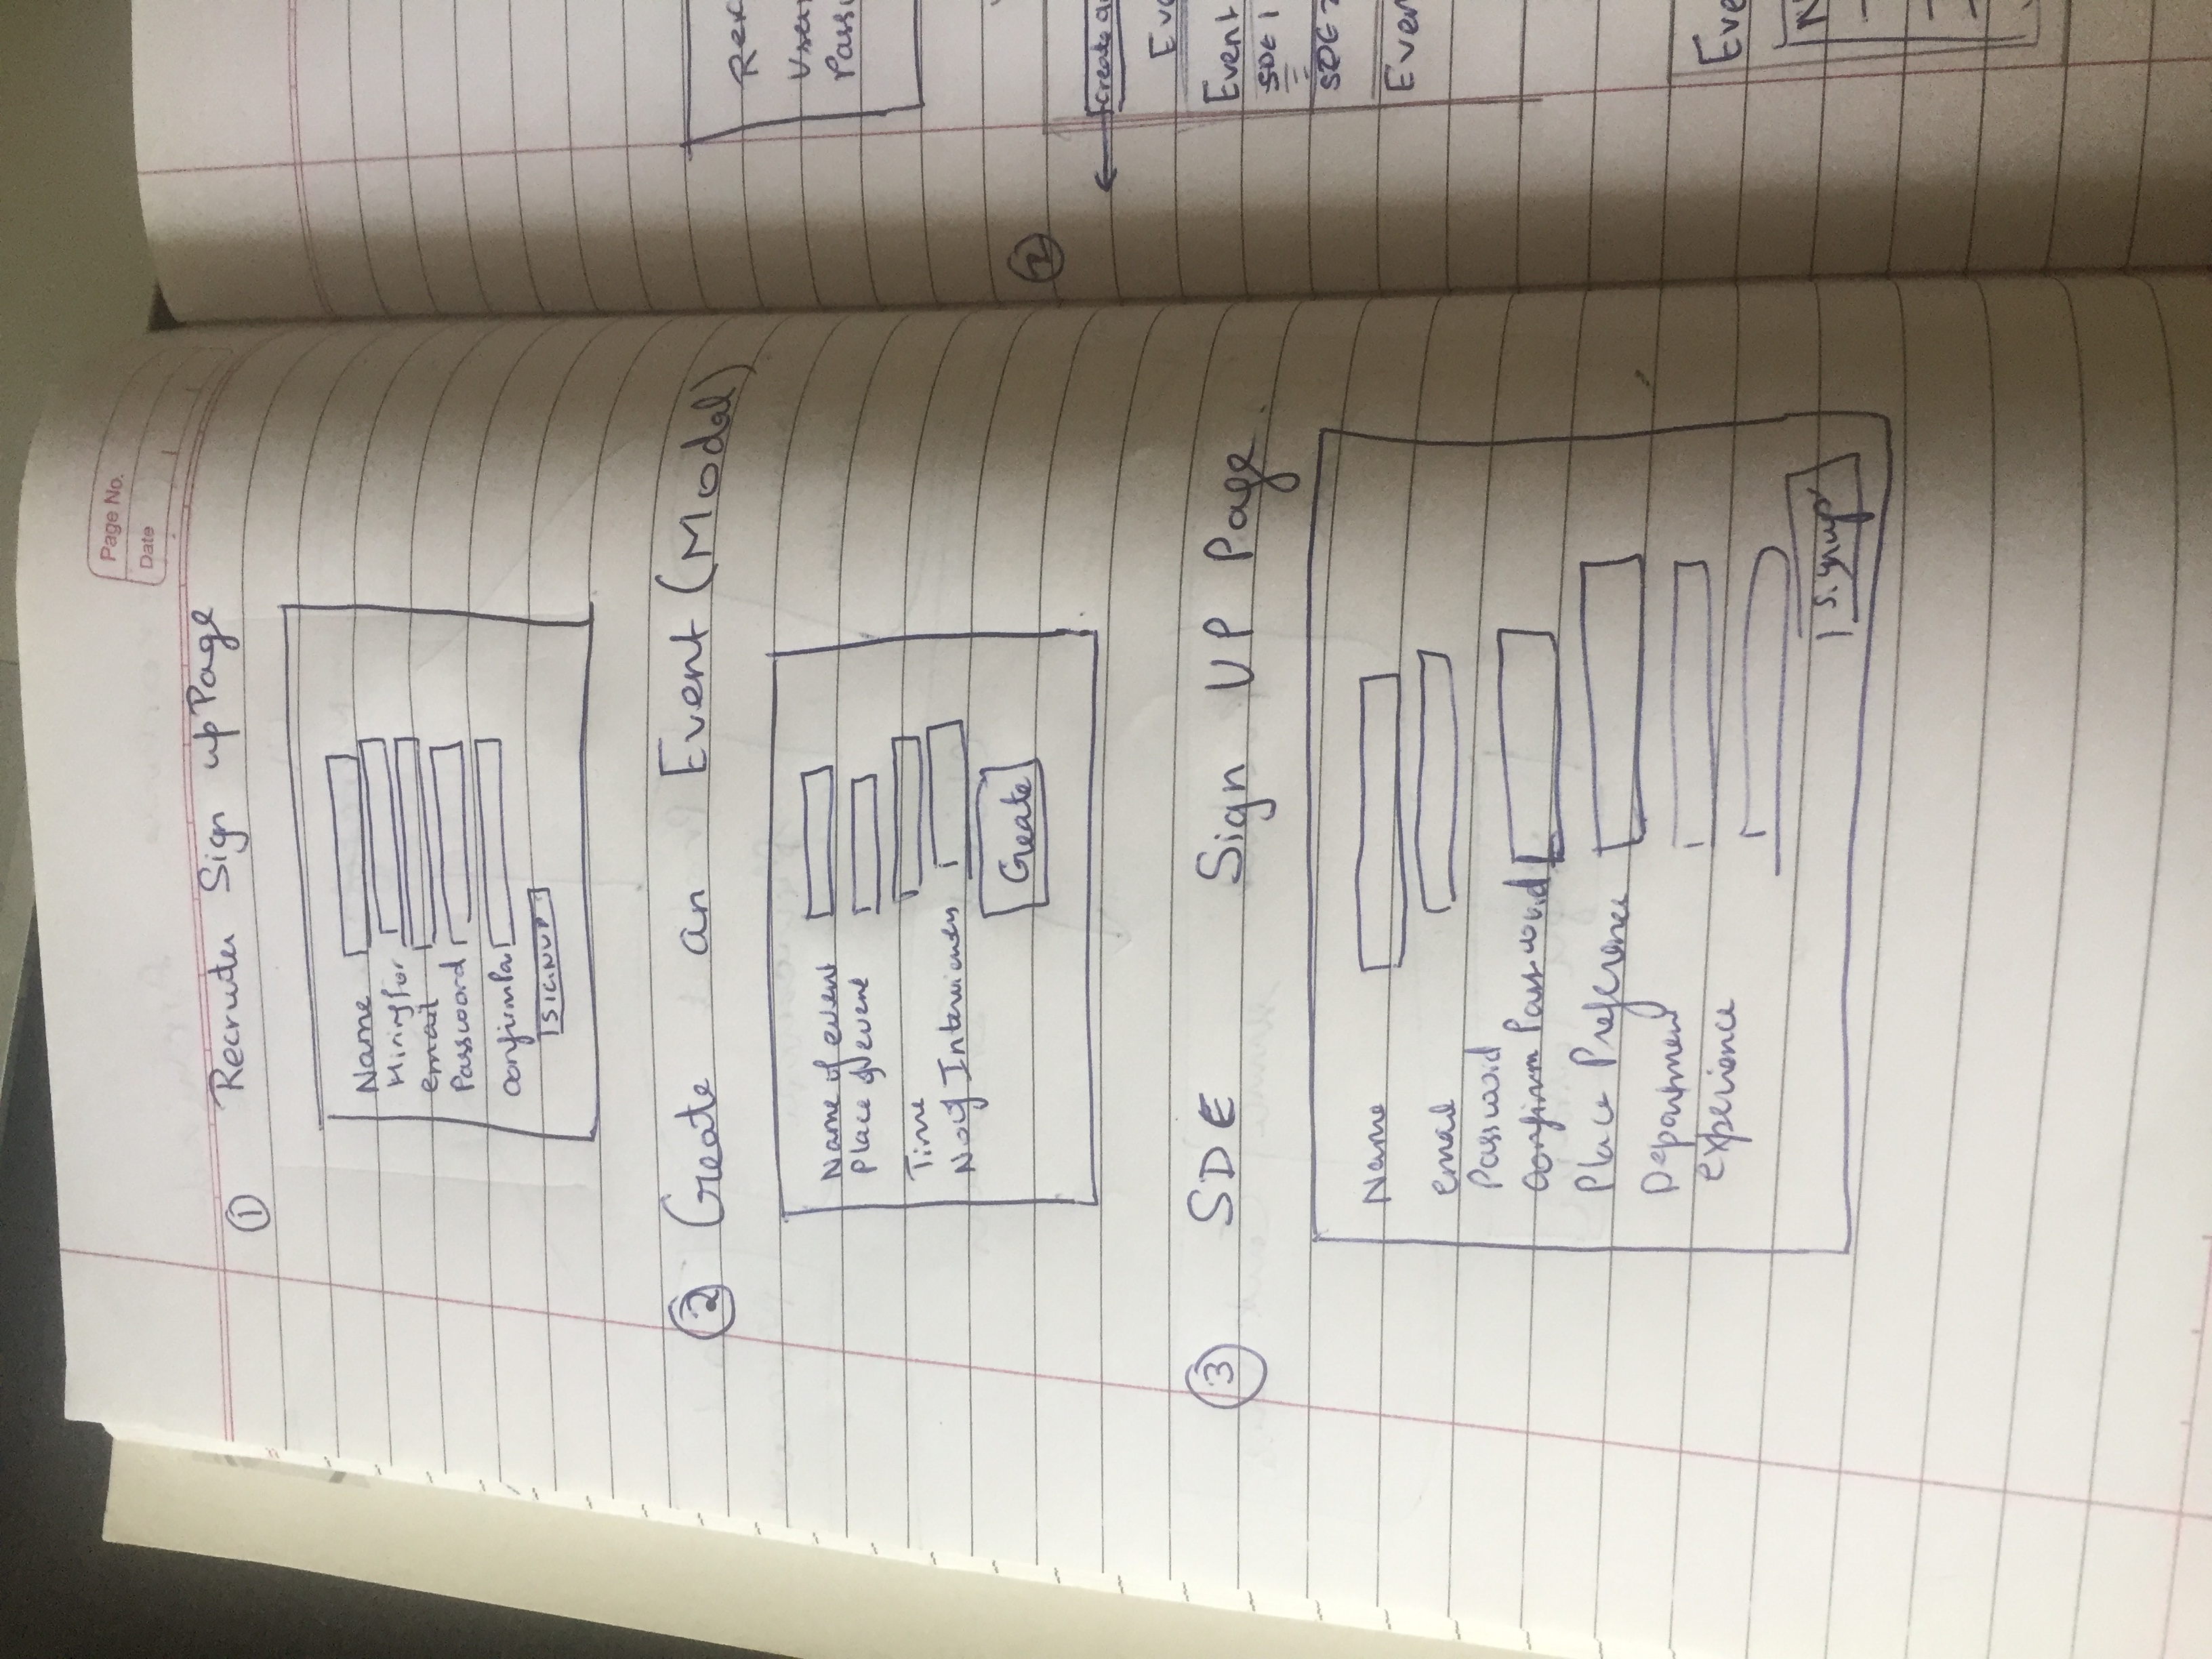 Page No.
Date
① Recruiter Sign up Page
Name
Hiring for
email
Password
Confirm Pa
SIGNUP
② Create an Event (Modal)
Name of event
Place of event
Time
No of Interviewers
Create
③ SDE Sign UP Page.
Name
email
Password
Confirm Password
Place Preference
Department
experience
Signup
Pass
②
Create a
Eve
Event
SDE 1
SDE 2
Even
Eve
N